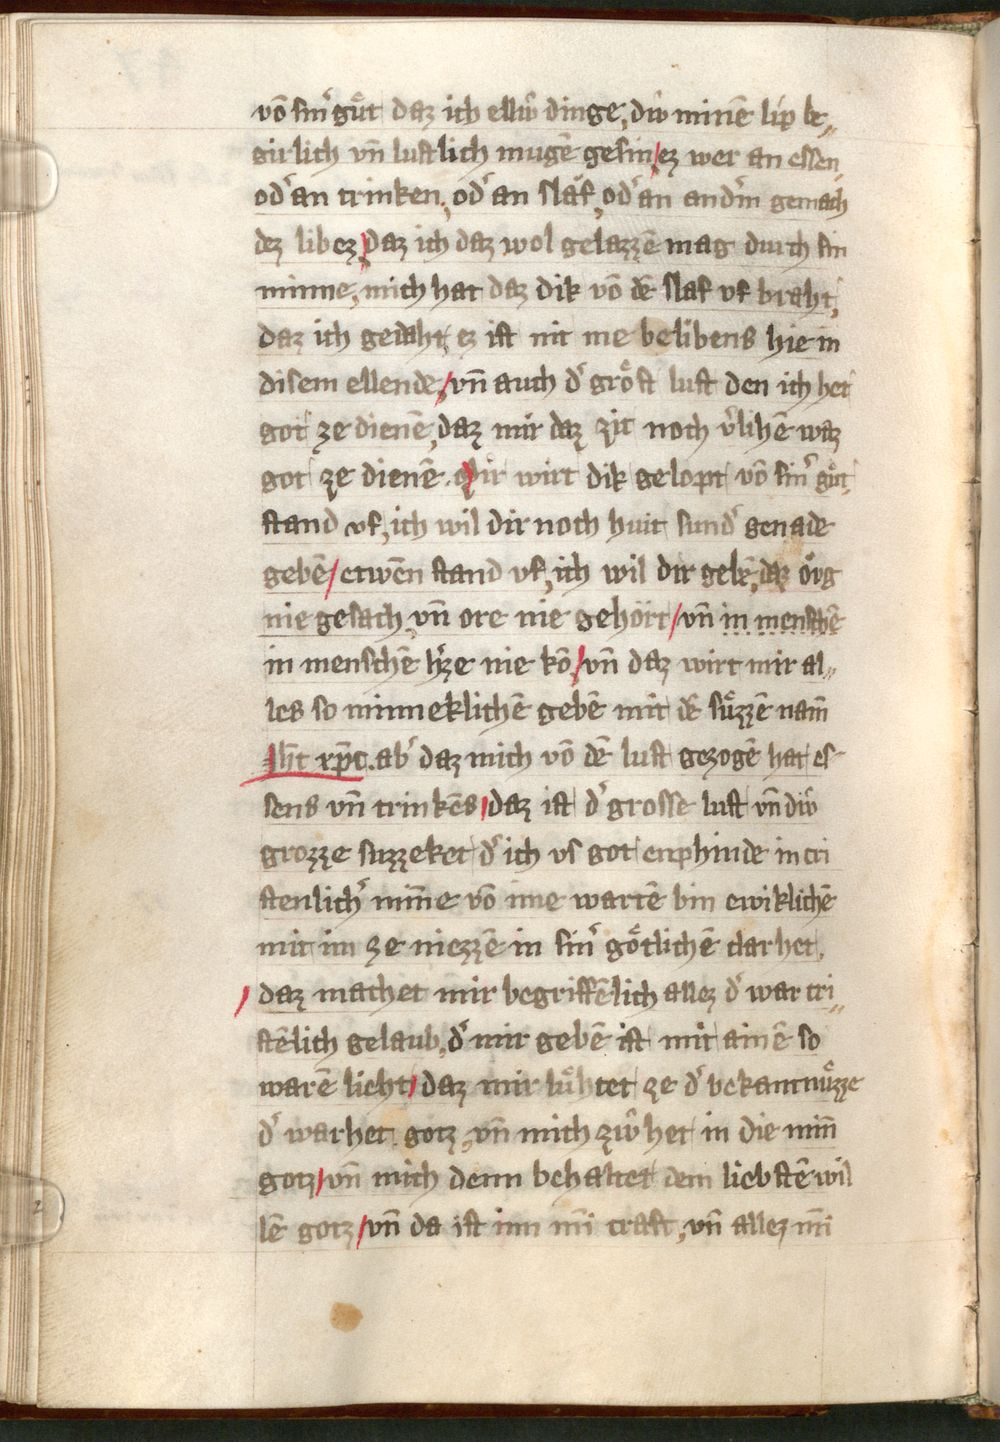 vō sinͬ guͤt daz ich elliv̂ dinge, div̂ minē lip be„
girlich vn̄ lustlich mugē gesin / ez wer an essen
odͬ an trinken, odͬ an slaͤf, odͬ an andͬm gemach
dez libez / Daz ich daz wol gelazzē mag durch sin
minne, mich hat daz dik vō dē slaf vf braht,
daz ich gedaht, ez ist nit me belibens hie in
disem ellende / vn̄ auch dͬ groͤst lust den ich het
got ze dienē, daz mir daz zit noch vͬlihē waz
got ze dienē. Mir wirt dik gelopt vō sinͬ guͤt,
stand vf, ich wil dir noch huit sundͬ genade
gebē / etwēn stand vf, ich wil dir gebē, daz oͤrg
nie gesach, vn̄ ore nie gehört / vn̄ in menschē
in menschē hͬze nie kō / vn̄ daz wirt mir al„
les so minneklichē gebē mit dē suͤzzē nam̄
Ih̄c xp̄c. abͬ daz mich vō dē lust gezogē hat es-
sens vn̄ trinkēs / daz ist dͬ grosse lust vn̄ div̂
grozze suzzeket dͬ ich vs got enphinde in cri
stenlichͬ min̄e vō ime wartē bin ewiklichē
mit im ze niezzē in sinͬ goͤtlichē clarhet.
/ daz machet mir begriffēlich allez dͬ war cri„
stēlich gelaub, dͬ mir gebē ist mit ainē so
warē licht / daz mir luͤhtet ze dͬ bekantnuͤzze
dͬ warhet gotz vn̄ mich ziv̂het in die min̄
gotz / vn̄ mich denn behaltet dem liebstē wil
lē gotz / vn̄ da ist inn mī craft, vn̄ allez mī